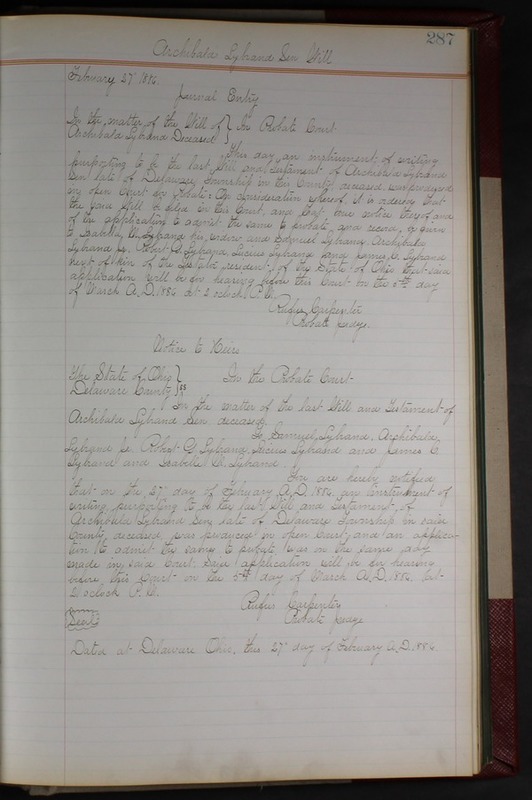 287
Archibald Lybrand Sen Will
February 27. 1886.
Journal Entry
In the matter of the Will of } In Probate Court
Archibald Lybrand Deceased
This day, an instrument of writing
purporting to be the last Will and testament of Archibald Lybrand
Sen late of Delaware Township in this County, deceased was produced
in open Court for Probate. On consideration whereof, it is ordered that
the said Will be filed in this Court, and that due notice thereof and
of the application to admit the same to probate, and record, be given
to Isabella C. Lybrand his widow and Samuel Lybrand, Archibald
Lybrand Jr., Robert G. Lybrand, Lucius Lybrand and James C. Lybrand
next of kin of the Testator resident of the State of Ohio that said
application will be for hearing before this Court on the 5th day
of March A.D. 1886 at 2 oclock P.M.
Rufus Carpenter
Probate judge.
Notice to Heirs
The State of Ohio } In the Probate Court
Delaware County } ss
In the matter of the last Will and Testament of
Archibald Lybrand Sen, deceased.
To Samuel Lybrand, Archibald
Lybrand Jr. Robert G. Lybrand, Lucius Lybrand and James C
Lybrand and Isabella C. Lybrand.
You are hereby notified
that on the 27th day of February A.D. 1886, an instrument of
writing purporting to be the last Will and testament of
Archibald Lybrand Sen, late of Delaware Township in said
County, deceased, was produced in open Court, and an applica-
tion to admit the same to probate, was on the same day
made in said Court. Said application will be for hearing
before this Court on the 5th day of March A.D. 1886, at
2 oclock P.M.
Rufus Carpenter
Seal Probate judge
Dated at Delaware Ohio, this 27 day of February A.D. 1886.